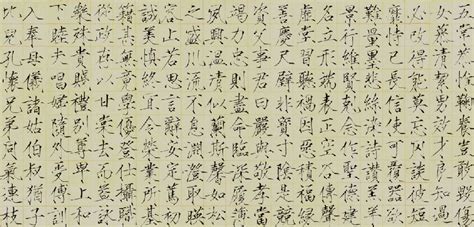 五常恭惟鞠養豈敢毀傷
女慕貞潔男效才良知過
必改得能莫忘罔談彼短
靡恃己長信使可覆器欲
難量墨悲絲染詩讚羔羊
景行維賢剋念作聖德建
名立形端表正空谷傳聲
虛堂習聽禍因惡積福緣
善慶尺璧非寶寸陰是競
資父事君曰嚴與敬孝當
竭力忠則盡命臨深履薄
夙興溫凊似蘭斯馨如松
之盛川流不息淵澄取暎
容止若思言辭安定篤初
誠美慎終宜令榮業所基
籍甚無竟學優登仕攝職
從政存以甘棠去而益詠
樂殊貴賤禮別尊卑上和
下睦夫唱婦隨外受傅訓
入奉母儀諸姑伯叔猶子
比兒孔懷兄弟同氣連枝